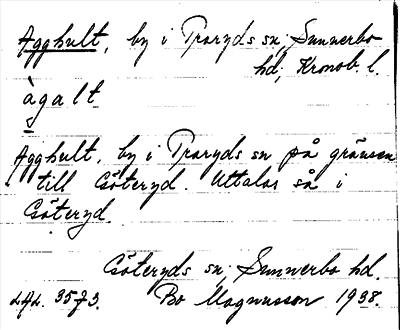 Agghult, by i Traryds sn, Sunnerbo
hd, Kronob. l.
àgalt
Agghult, by i Traryds sn på gränsen
till Göteryd. Uttalas så i
Göteryd.
Göteryds sn Sunnerbo hd.
3573. Bo Magnusson 1938.